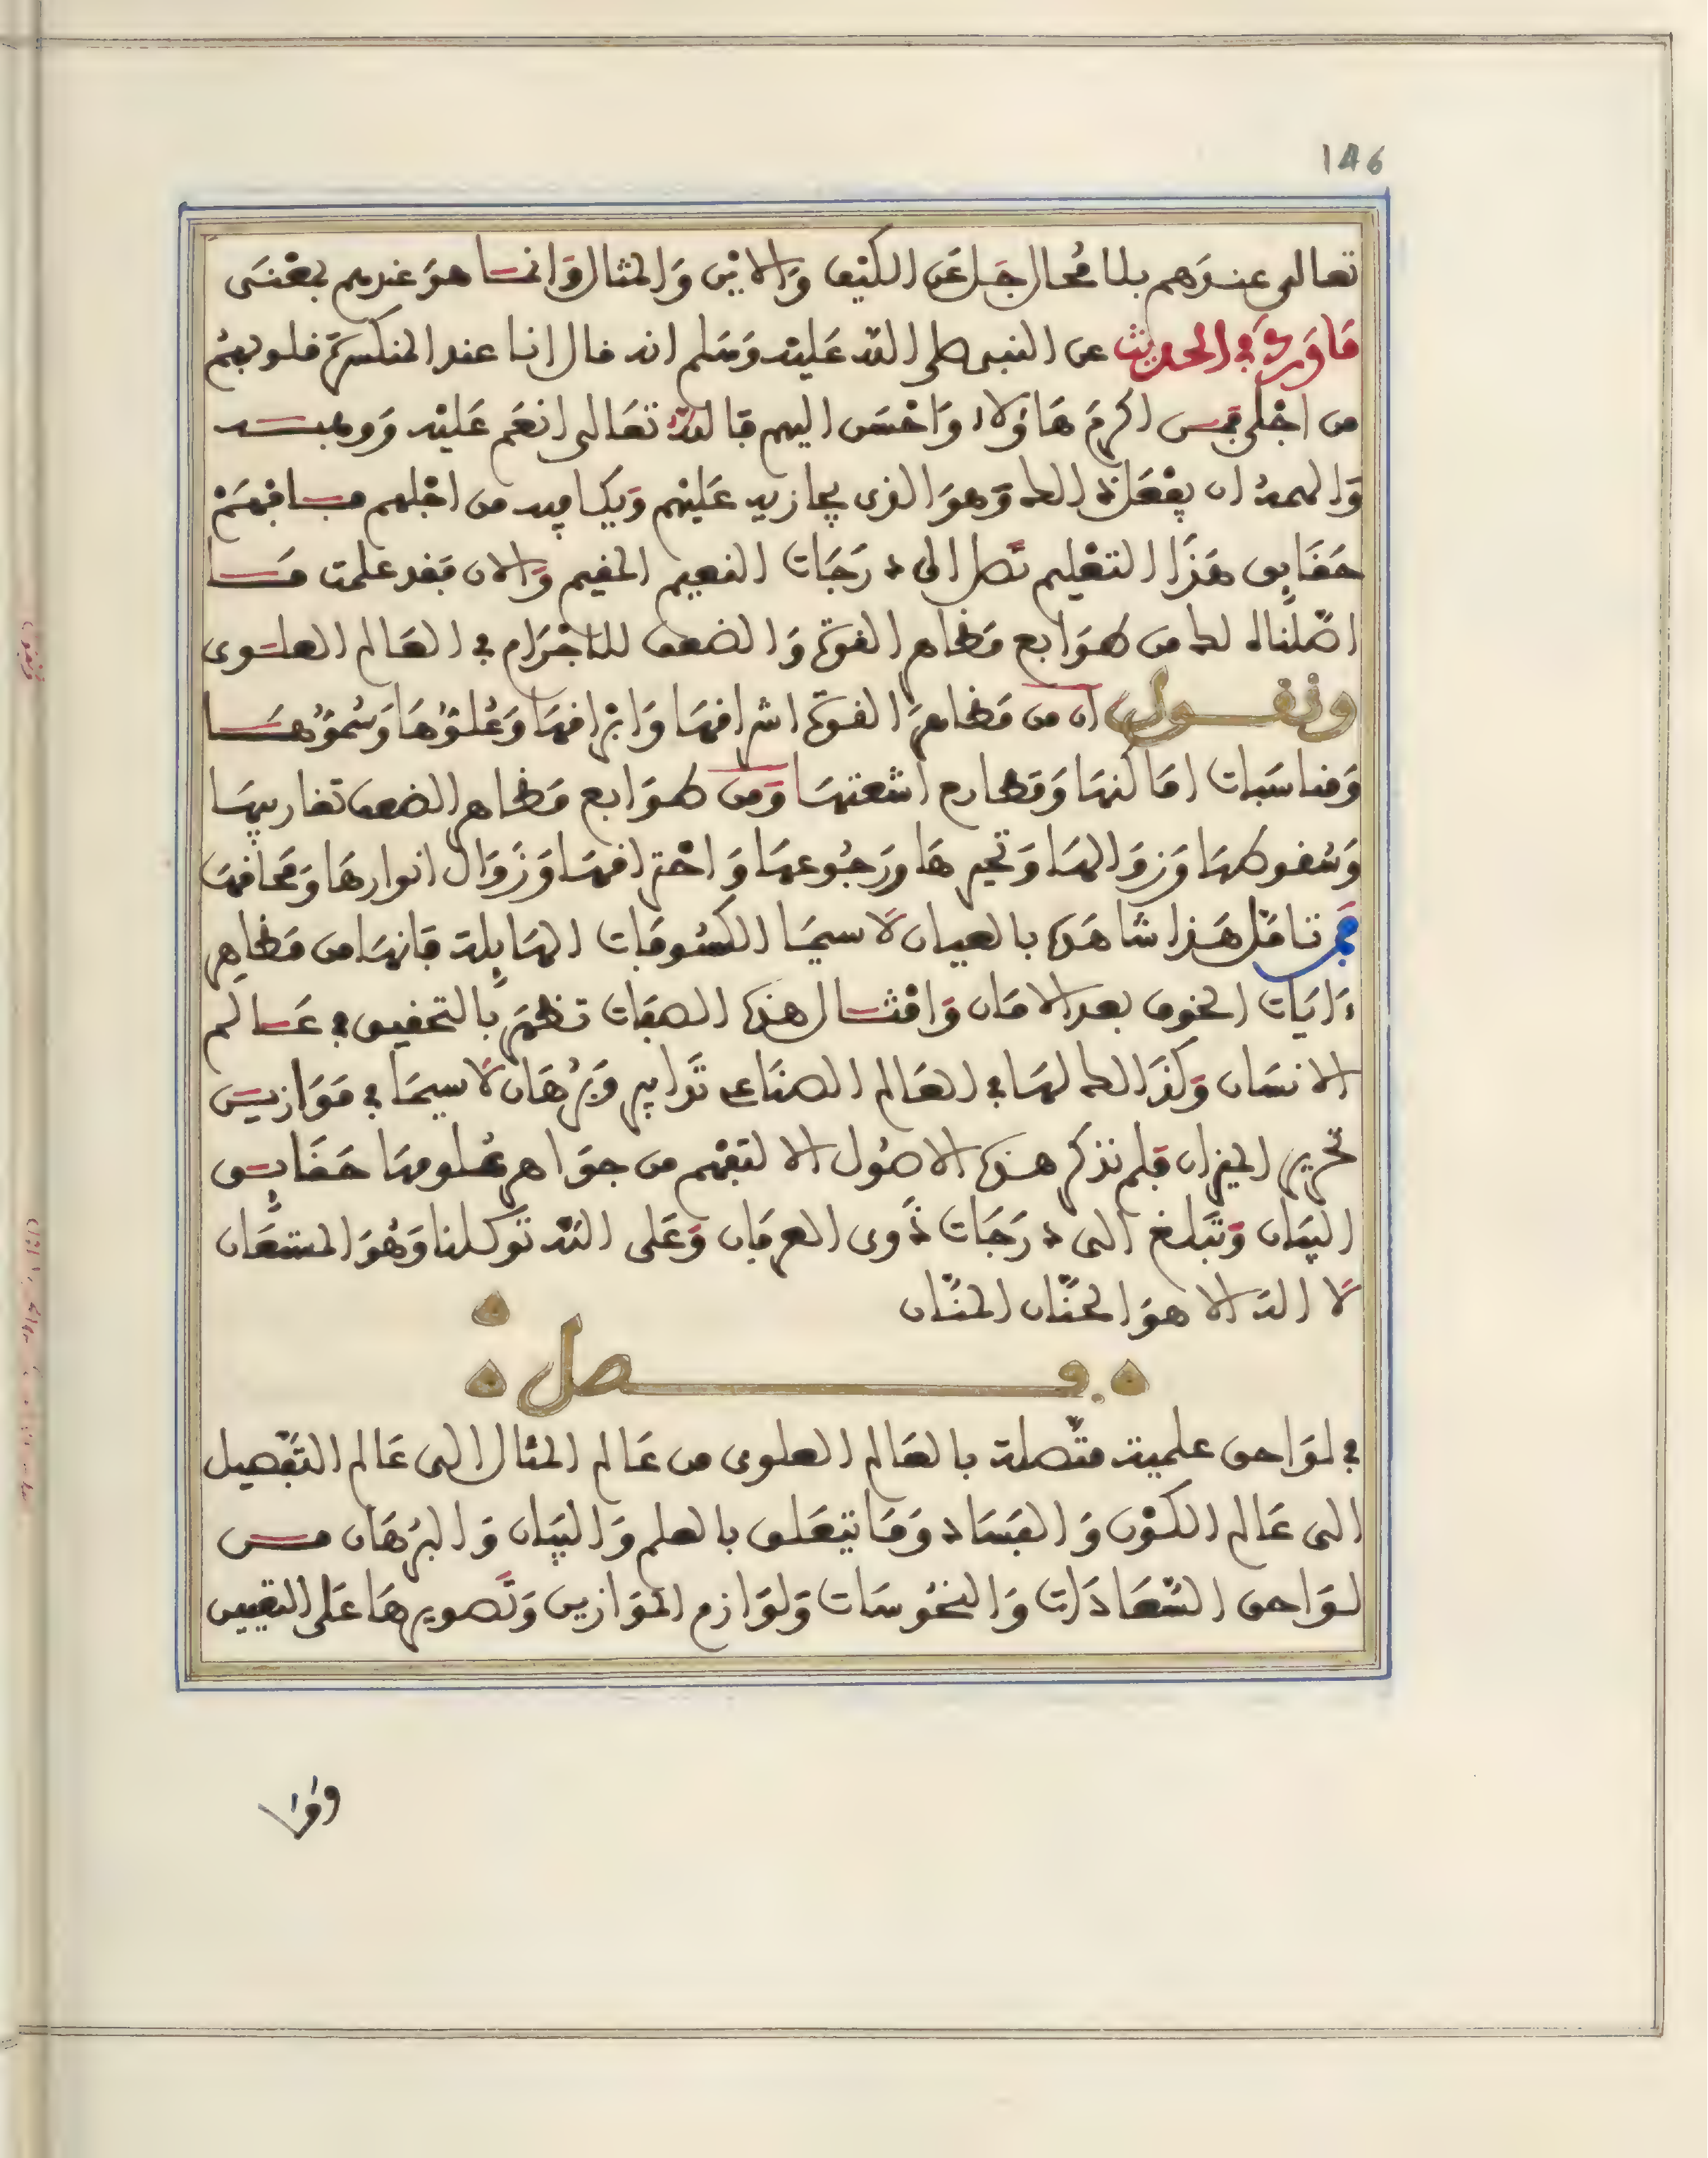 146
تعالى عندهم بلا محال جل عن الكيف والاين والمثال وانما هو عندهم بمعنى
ما ورد في الحديث عن النبي صلى الله عليه وسلم انه قال انا عند المنكسرة قلوبهم
من اجلي فمن اكرم هاولاء واحسن اليهم فالله تعالى انعم عليه ووهبه
والهمه ان يفعل ذالك وهو الذي يجازيه عليهم ويكافيه من اجلهم فافهم
حقايق هذا التعليم تصل الى درجات النعيم المقيم والان فقد علمت ما
اصلناه لك من طوابع مظاهر القوة والضعف للاجرام في العالم العلوي
ونقول ان من مظاهر القوة اشرافها وابرافها وعلوها وسموها
ومناسبات اماكنها ومطارح اشعتها ومن طوابع مظاهر الضعف تغاريبها
وسقوطها وزوالها وتحيرها ورجوعها واحترافها وزوال انوارها ومحافها
فمن تامل هذا شاهده بالعيان لا سيما الكسوفات الهايلة فانها من مظاهر
ءايات الخوف بعد الامان وامثال هذه الصفات تظهر بالتحقيق في عالم
الانسان وكذالك لها في العالم الصناعي تدابير وبرهان لا سيما في موازين
تحرير الميزان فلم نذكر هذه الاصول الا لتفهم من جواهر علومها حقايق
البيان وتبلغ الى درجات ذوى العرفان وعلى الله توكلنا وهو المستعان
لا اله الا هو الحنان المنان
فصل
في لواحق علمية متصلة بالعالم العلوى من عالم المثال الى عالم التفصيل
الى عالم الكون والفساد وما يتعلق بالعلم والبيان والبرهان من
لواحق السعادات والنحوسات ولوازم الموازين وتصويرها على التعيين
وقا